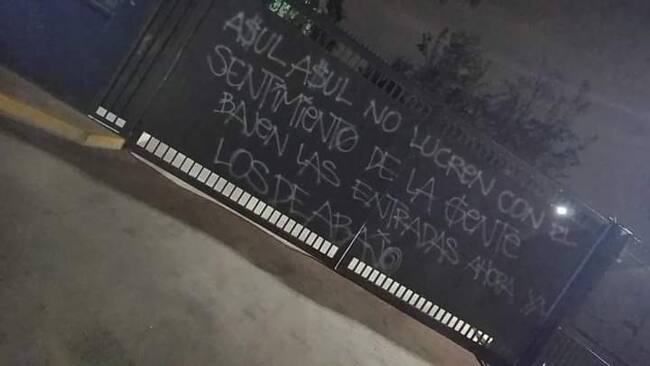 A$UL A$UL NO LUCREN CON EL
SENTIMIENTO DE LA GENTE
BAJEN LAS ENTRADAS AHORA YA
LOS DE ABAJO